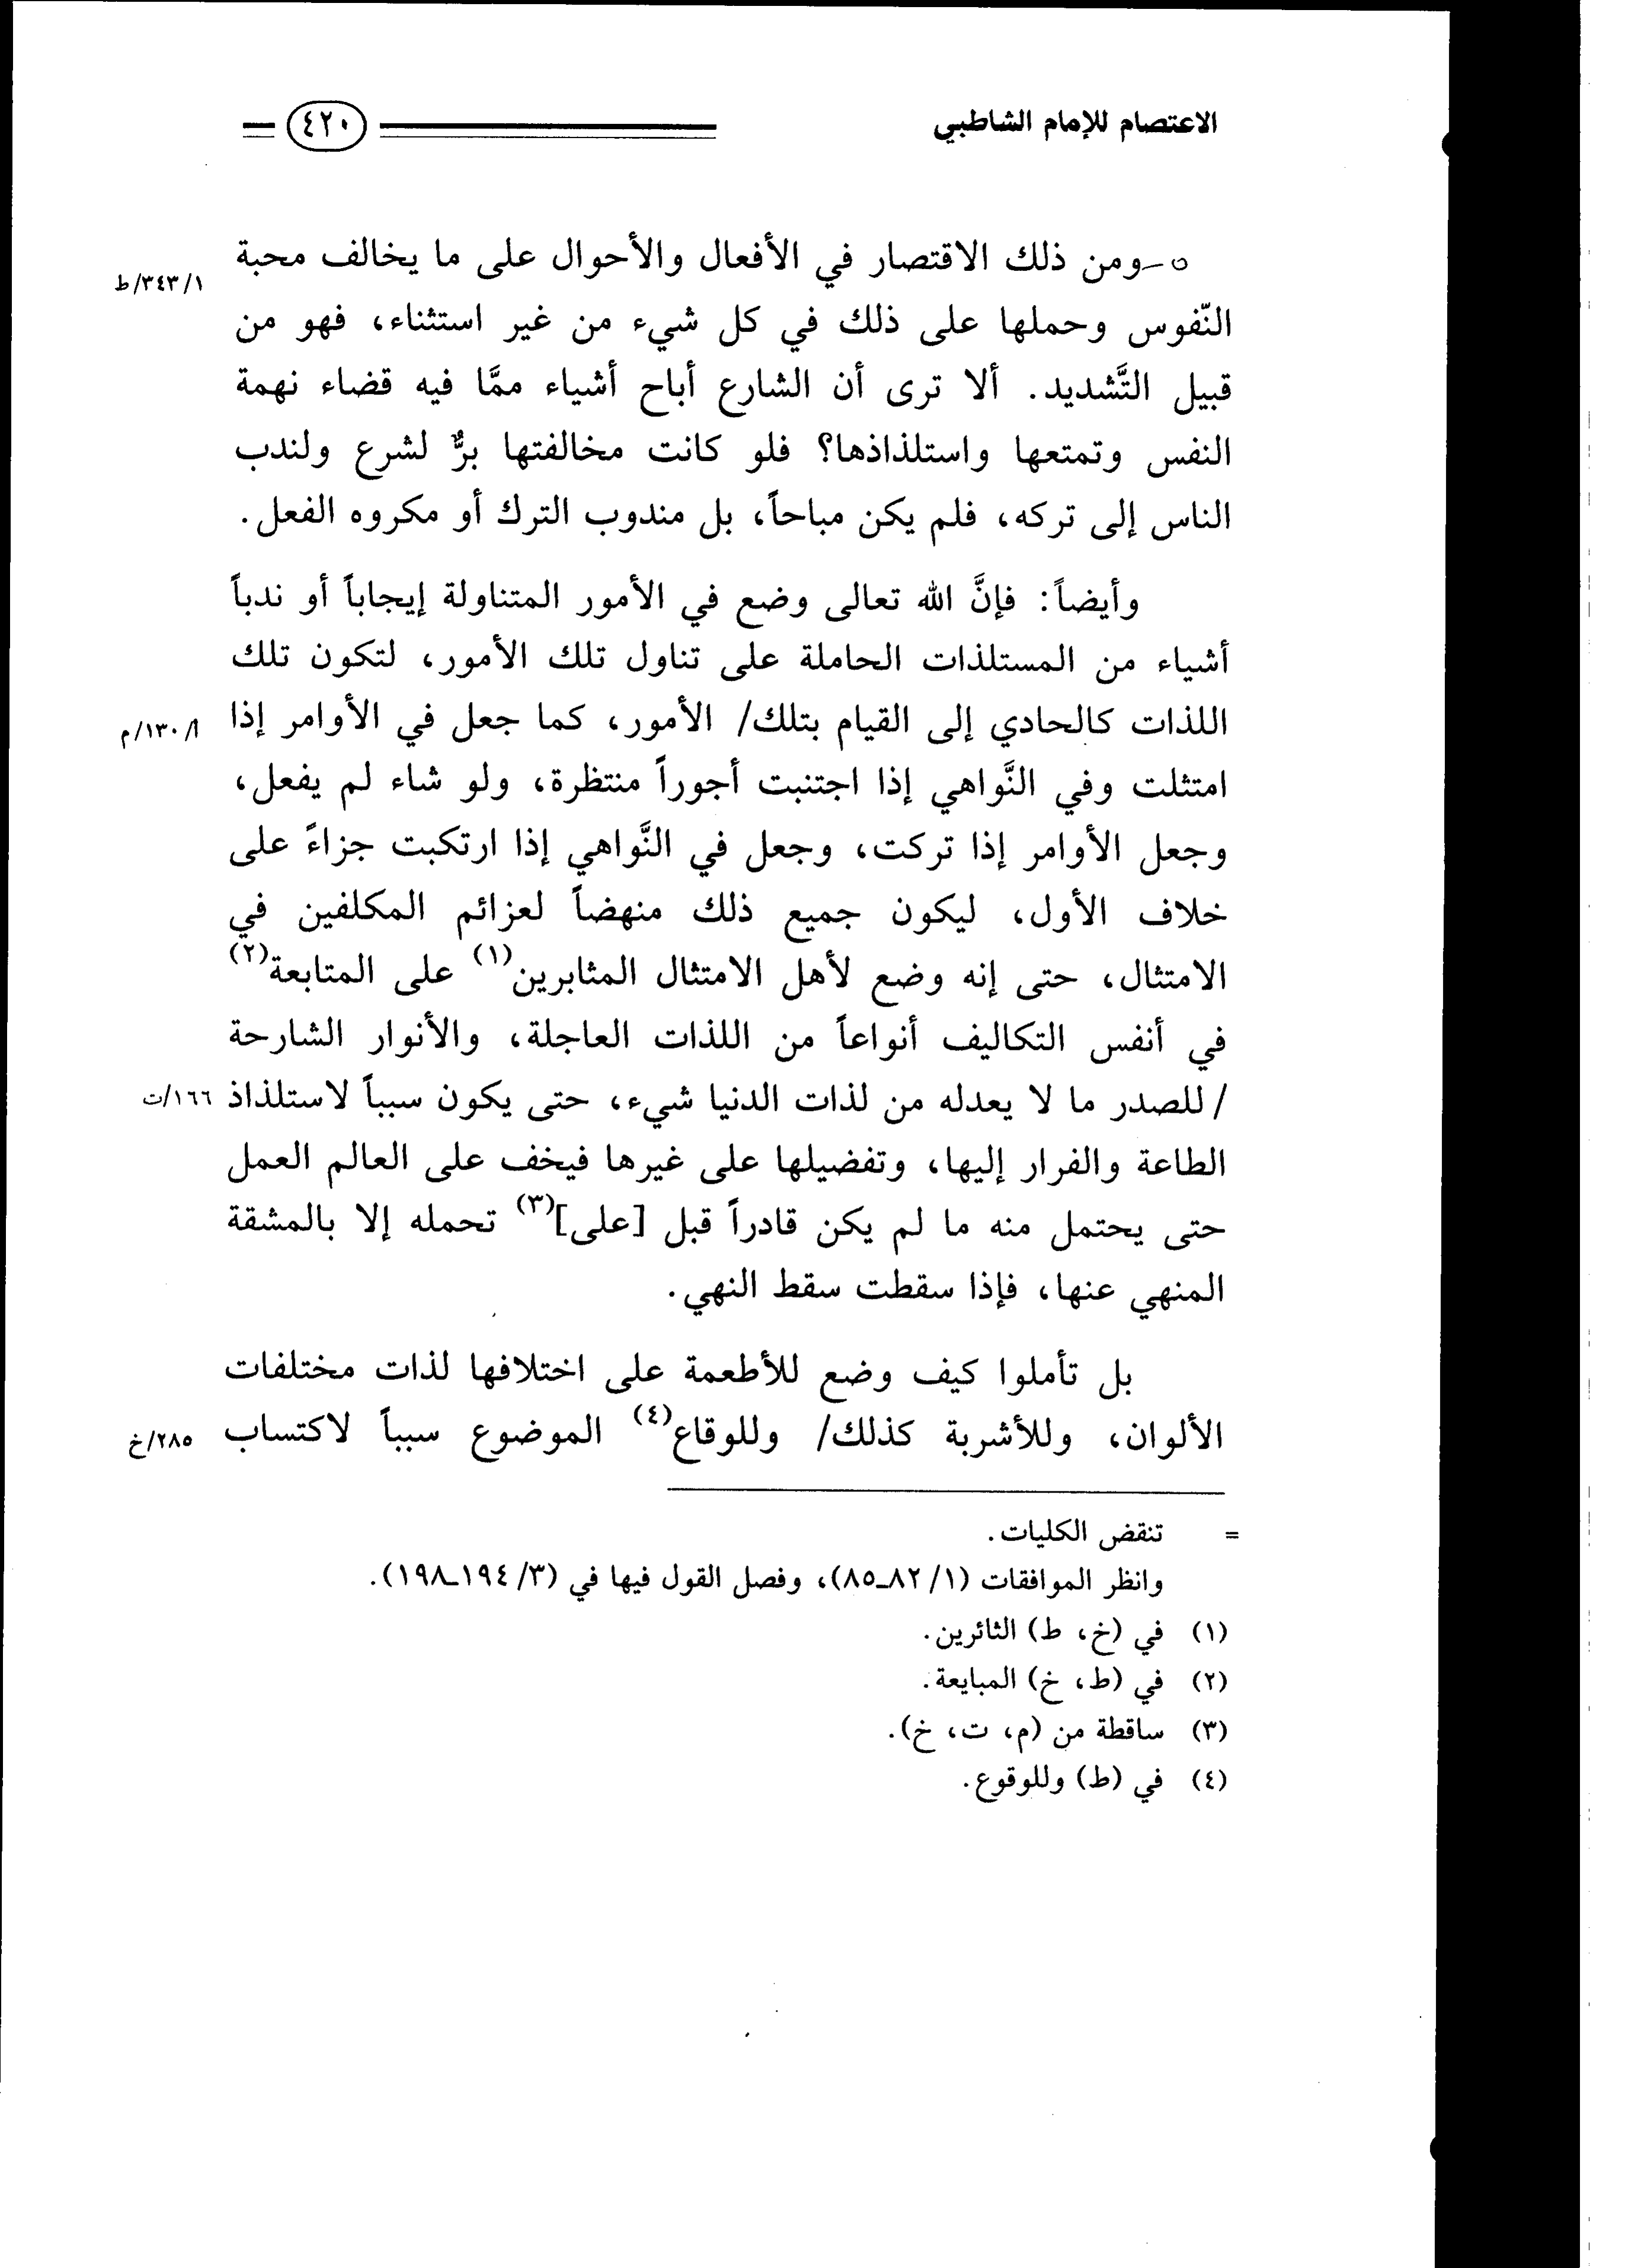 الاعتصام للإمام الشاطبي
٤٢٠
٥ـ ومن ذلك الاقتصار في الأفعال والأحوال على ما يخالف محبة
٣٤٣/١/ط
النّفوس وحملها على ذلك في كل شيء من غير استثناء، فهو من
قبيل التَّشديد. ألا ترى أن الشارع أباح أشياء ممَّا فيه قضاء نهمة
النفس وتمتعها واستلذاذها؟ فلو كانت مخالفتها برٌّ لشرع ولندب
الناس إلى تركه، فلم يكن مباحاً، بل مندوب الترك أو مكروه الفعل.
وأيضاً: فإنَّ الله تعالى وضع في الأمور المتناولة إيجاباً أو ندباً
أشياء من المستلذات الحاملة على تناول تلك الأمور، لتكون تلك
اللذات كالحادي إلى القيام بتلك/ الأمور، كما جعل في الأوامر إذا
أ/١٣٠/م
امتثلت وفي النَّواهي إذا اجتنبت أجوراً منتظرة، ولو شاء لم يفعل،
وجعل الأوامر إذا تركت، وجعل في النَّواهي إذا ارتكبت جزاءً على
خلاف الأول، ليكون جميع ذلك منهضاً لعزائم المكلفين في
الامتثال، حتى إنه وضع لأهل الامتثال المثابرين(١) على المتابعة(٢)
في أنفس التكاليف أنواعاً من اللذات العاجلة، والأنوار الشارحة
/ للصدر ما لا يعدله من لذات الدنيا شيء، حتى يكون سبباً لاستلذاذ
١٦٦/ت
الطاعة والفرار إليها، وتفضيلها على غيرها فيخف على العالم العمل
حتى يحتمل منه ما لم يكن قادراً قبل [على](٣) تحمله إلا بالمشقة
المنهي عنها، فإذا سقطت سقط النهي.
بل تأملوا كيف وضع للأطعمة على اختلافها لذات مختلفات
الألوان، وللأشربة كذلك/ وللوقاع(٤) الموضوع سبباً لاكتساب
٢٨٥/خ
= تنقض الكليات.
وانظر الموافقات (١/ ٨٢ـ٨٥)، وفصل القول فيها في (٣/ ١٩٤ـ١٩٨).
(١) في (خ، ط) الثائرين.
(٢) في (ط، خ) المبايعة.
(٣) ساقطة من (م، ت، خ).
(٤) في (ط) وللوقوع.